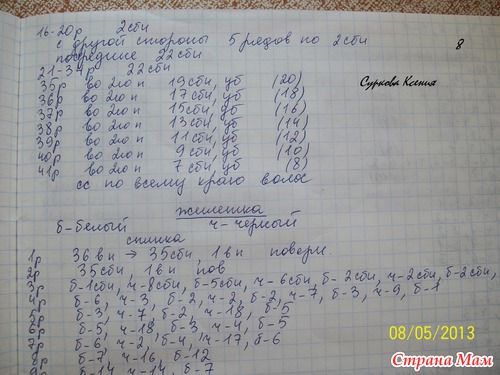 16-20р 2сбн
с другой стороны 5 рядов по 2сбн
посредине 22сбн
8
21-34р 22сбн
35р во 2юп 19сбн, уб (20)
Суркова Ксения
36р во 2юп 17сбн, уб (18)
37р во 2юп 15сбн, уб (16)
38р во 2юп 13сбн, уб (14)
39р во 2юп 11сбн, уб (12)
40р во 2юп 9сбн, уб (10)
41р во 2юп 7сбн, уб (8)
сс по всему краю волос
жилетка
б-белый ч-черный
спинка
1р 36вп → 35сбн, 1вп поверн.
2р 35сбн, 1вп пов
3р б-1сбн, ч-8сбн, б-5сбн, ч-6сбн, б-2сбн, ч-2сбн, б-2сбн,
4р б-6, ч-3, б-2, ч-2, б-2, ч-7, б-3, ч-9, б-1
5р б-3, ч-7, б-2, ч-18, б-5
6р б-5, ч-18, б-3, ч-4, б-5
7р б-6, ч-2, б-4, ч-17, б-6
8р б-7, ч-16, б-12
9р б-14, ч-14, б-7
08/05/2013
Страна Мам